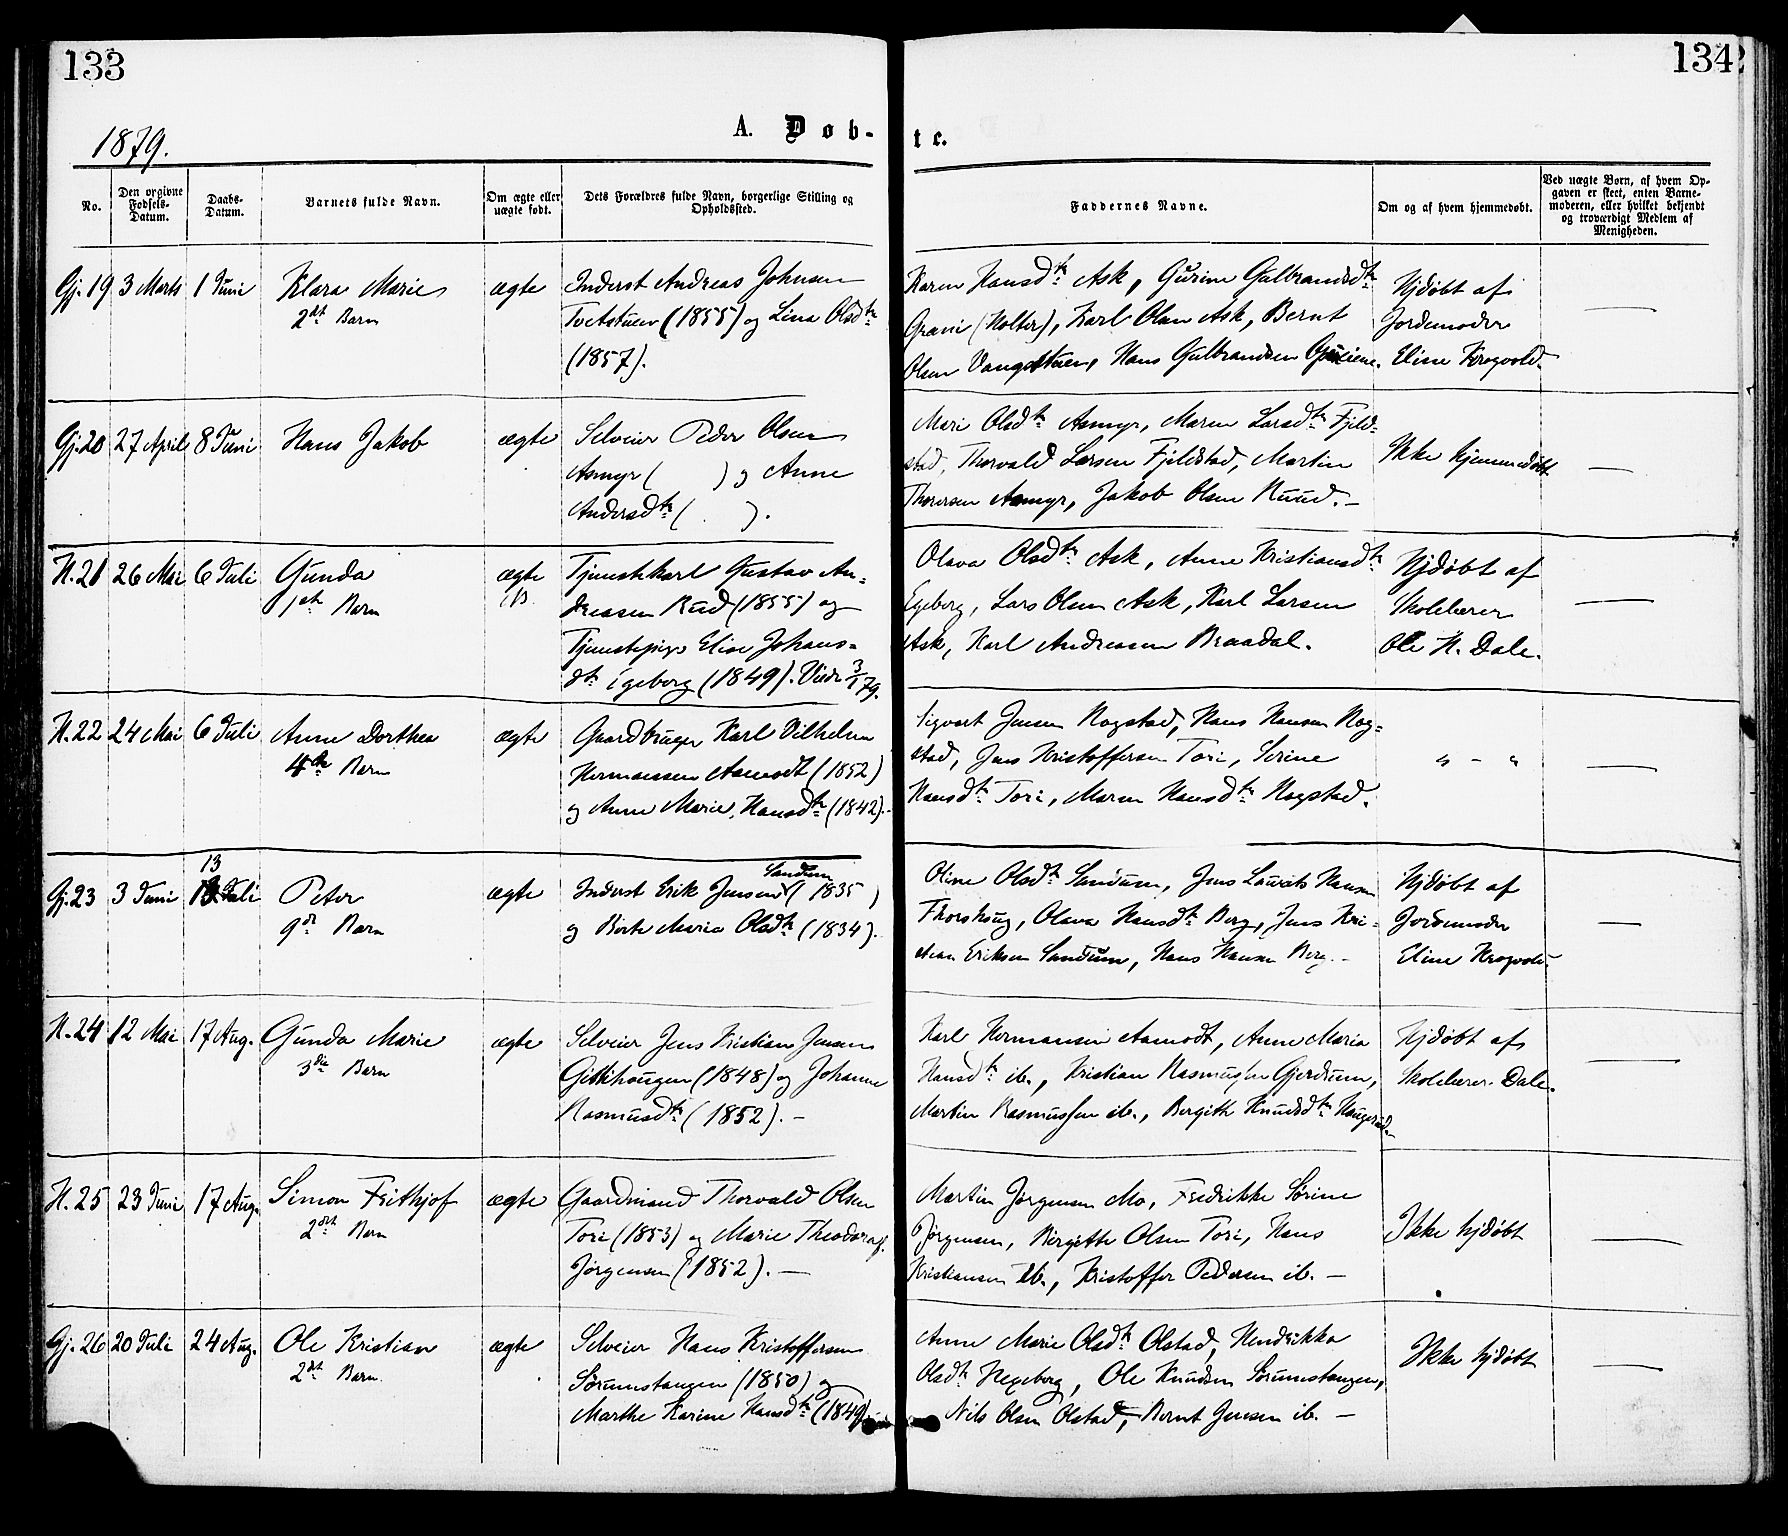 133
134
1879.
A. Døb-
te.
No.
Den opgivne Fødsels-Datum.
Daabs-Datum.
Barnets fulde Navn.
Om ægte eller uægte født.
Dets Forældres fulde Navn, borgerlige Stilling og Opholdssted.
Faddernes Navne.
Om og af hvem hjemmedøbt.
Ved uægte Børn, af hvem Op-
gaven er skeet, enten Barne-
moderen, eller hvilket bekjendt
og troværdigt Medlem af
Menigheden.
Gj. 19 3 Marts 1 Juni
Klara Marie
2det Barn
ægte
Inderst Andreas Johnsen
Tvetstuen (1855) og Lina Olsdtr
(1857).
Karen Hansdtr Ask, Gurine Gulbrandsdtr
Gravi (Holter), Karl Olsen Ask, Bernt
Olsen Vangstuen, Hans Gulbrandsen
Hjdøbt af
Jordemoder
Eline Krogvold.
Gj. 20 27 April 8 Juni
Hans Jakob
ægte
Selveier Peder Olsen
Asmyr ( ) og Anne
Andersdtr ( ).
Mari Olsdtr Asmyr, Maren Larsdtr Fjeld-
stad, Thorvald Larsen Fjeldstad, Martin
Thoresen Asmyr, Jakob Olsen Ruud. –
Ikke hjemmedøbt
H. 21 26 Mai 6 Juli
Gunda
1ste Barn
ægte
Tjenestekarl Gustav An-
dreasen Rud (1855) og
Tjenestepige Elise Johans-
dtr Egeberg (1849). Viede 3/1 79.
Olava Olsdtr Ask, Anne Kristiansdtr
Egeberg, Lars Olsen Ask, Karl Larsen
Ask, Karl Andreasen Braadal.
Hjdøbt af
Skolelærer
Ole H. Dale.
H. 22 24 Mai 6 Juli
Anne Dorthea
4de Barn
ægte
Gaardbruger Karl Vilhelm
Hermansen Aamodt (1852)
og Anne Marie Hansdtr (1842). -
Sigvart Jensen Nogstad, Hans Hansen Nog-
stad, Jens Kristoffersen Tori, Serine
Hansdtr Tori, Maren Hansdtr Nogstad.
" - "
Gj. 23 3 Juni 13 Juli
Peter
9de Barn
ægte
Inderst Erik Jensen Sandum (1835)
og Birte Maria Olsdtr (1834).
Oline Olsdtr Sandum, Jens Laurits Hansen
Thorshaug, Olava Hansdtr Berg, Jens Kri-
stian Eriksen Sandum, Hans Hansen Berg. -
Hjdøbt af
Jordemoder
Eline Krogvold.
H. 24 12 Mai 17 Aug.
Gunda Marie
3die Barn
ægte
Selveier Jens Kristian Jensen
(1848) og Johanne
Rasmusdtr (1852). –
Karl Hermansen Aamodt, Anne Maria
Hansdtr ib., Kristian Rasmussen Gjerdrum,
Martin Rasmussen ib., Bergith Knudsdtr
Hjdøbt af
Skolelærer Dale.
H. 25 23 Juni 17 Aug.
Simon Frithjof
2det Barn
ægte
Gaardmand Thorvald Olsen
Tori (1853) og Marie Theodora f.
Jørgensen (1852). –
Martin Jørgensen Mo, Fredrikke Sørine
Jørgensen, Birgitte Olsen Tori, Hans
Kristiansen ib., Kristoffer Pedersen ib. –
Ikke hjdøbt
Gj. 26 20 Juli 24 Aug.
Ole Kristian
2det Barn.
ægte
Selveier Hans Kristoffersen
Sørumstangen (1850) og
Marthe Karine Hansdtr (1849)
Anne Marie Olsdtr Olstad, Hendrikka
Olsdtr Hegeberg, Ole Knudsen Sørumstangen,
Nils Olsen Olstad, Bernt Jensen ib. –
Ikke hjdøbt